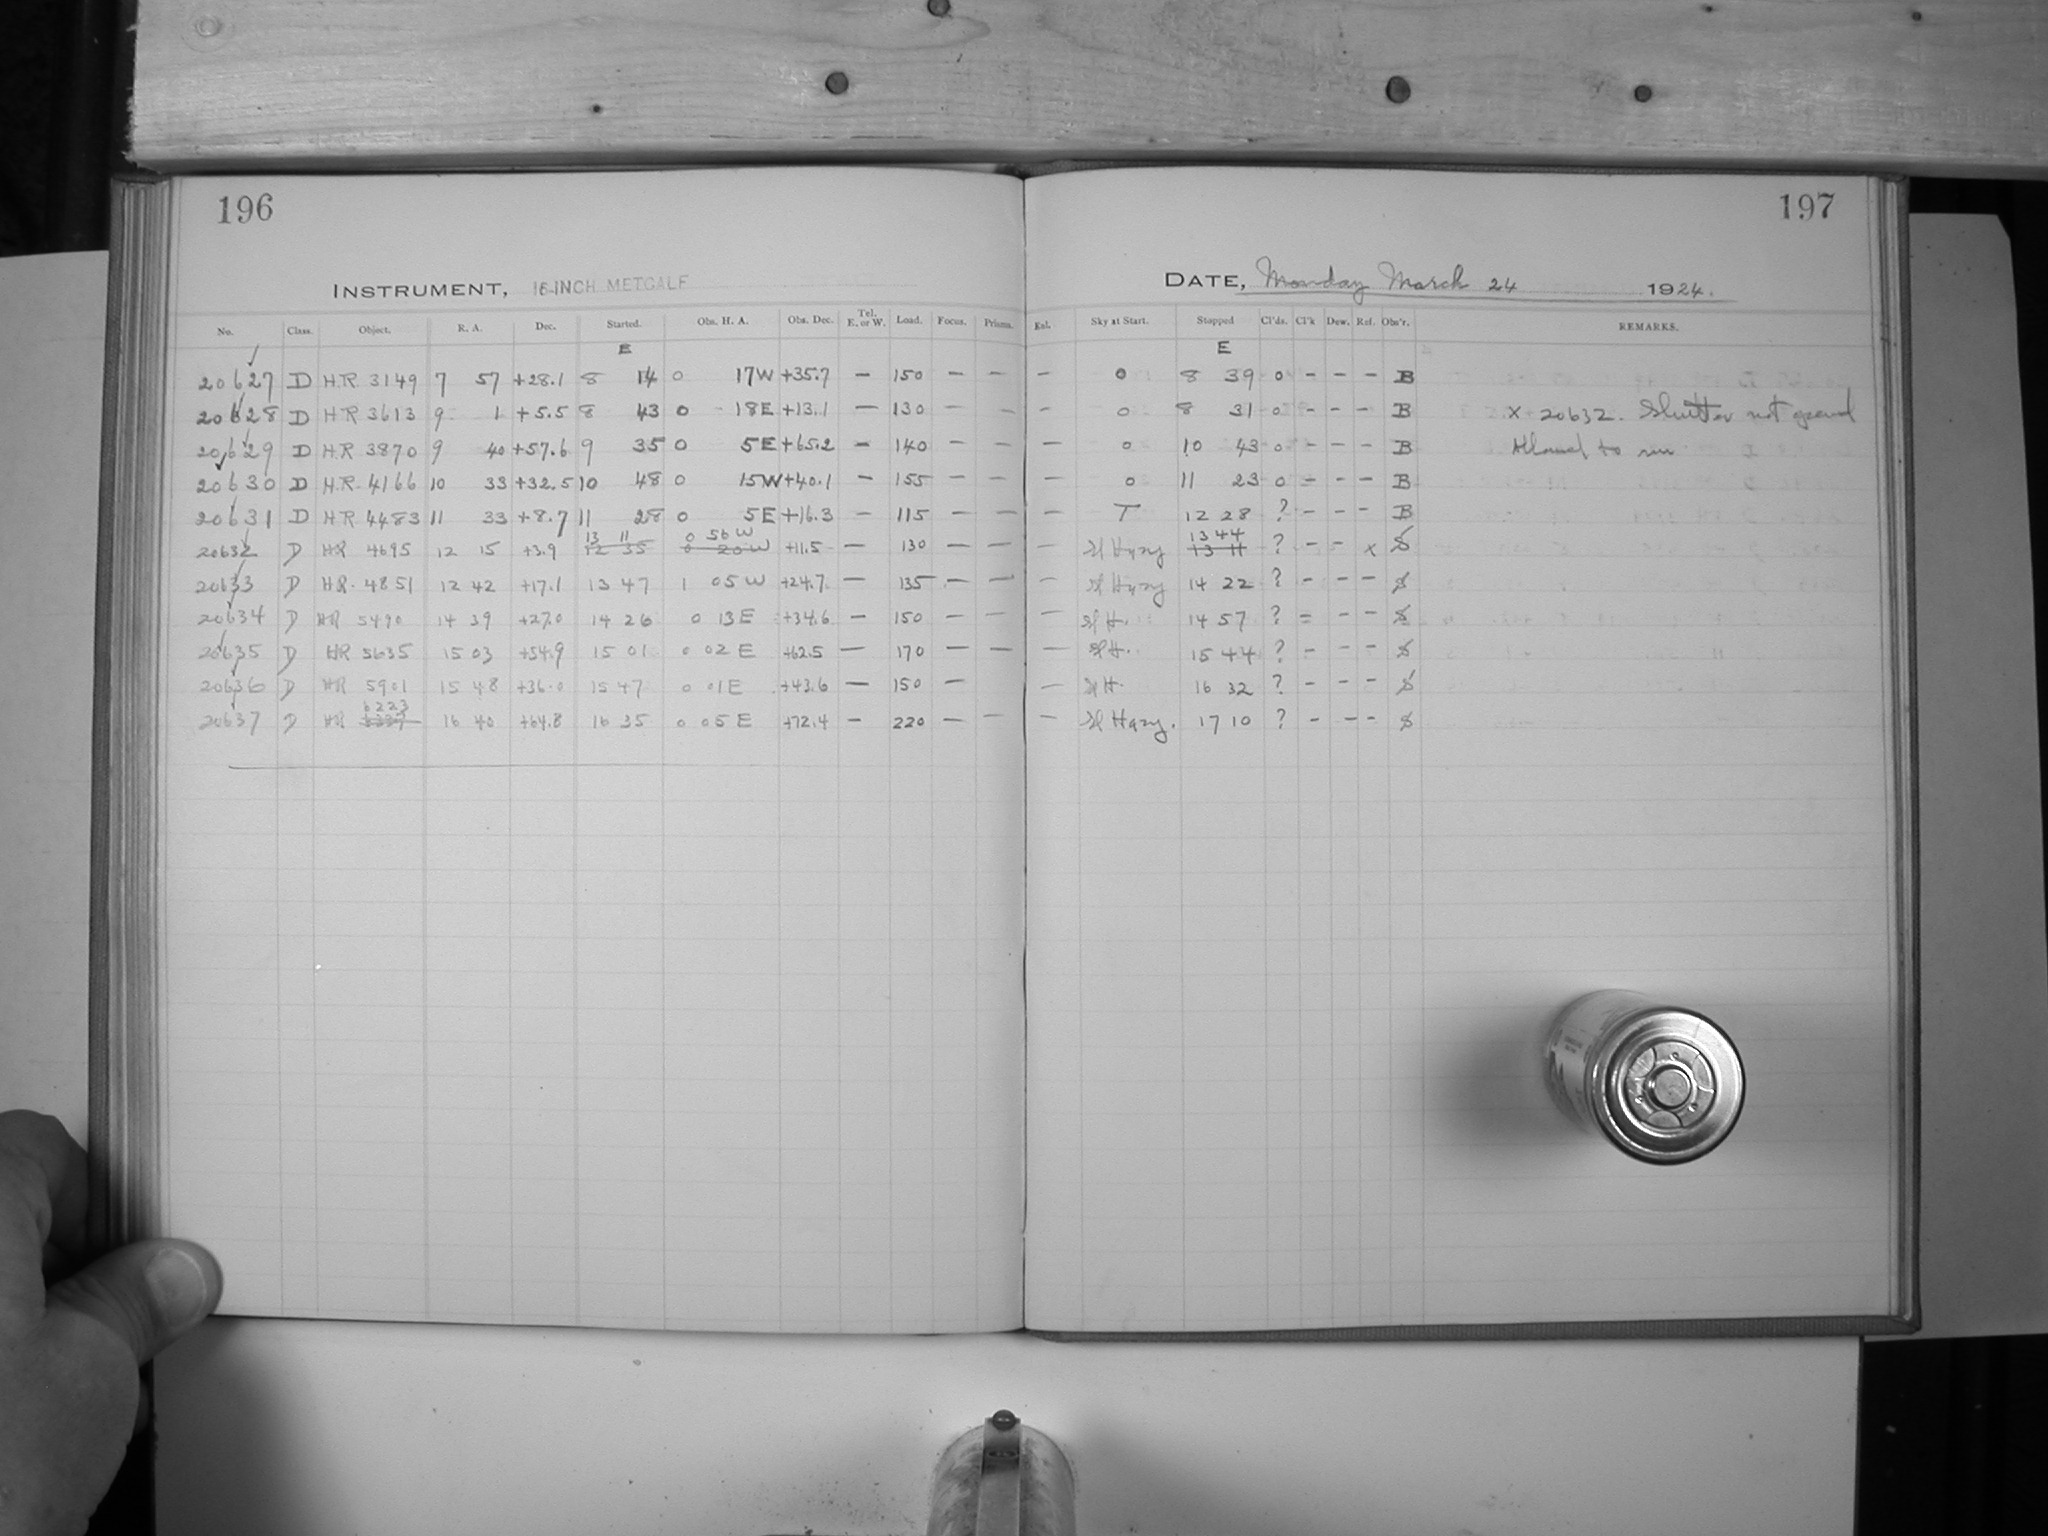 196
INSTRUMENT, 16-INCH METCALF
No. Class. Object. R. A. Dec. Started. Obs. H. A. Obs. Dec. Tel. E. or W. Load. Focus. Prisms.
E
20627 D H.R. 3149 7 57 +28.1 8 14 0 17W +35.7 — 150 — —
20628 D H.R 3613 9 1 +5.5 8 43 0 18E +13.1 — 130 — —
20629 D H.R. 3870 9 40 +57.6 9 35 0 5E +65.2 — 140 — —
20630 D H.R. 4166 10 33 +32.5 10 48 0 15W +40.1 — 155 — —
20631 D H.R 4483 11 33 +8.7 11 28 0 5E +16.3 — 115 — —
13 11 0 56 W
20632 D HR 4695 12 15 +3.9 12 35 0 20W +11.5 — 130 — —
20633 D HR. 4851 12 42 +17.1 13 47 1 05 W +24.7 — 135 — —
20634 D HR 5490 14 39 +27.0 14 26 0 13 E +34.6 — 150 — —
20635 D HR 5635 15 03 +54.9 15 01 0 02 E +62.5 — 170 — —
20636 D HR 5901 15 48 +36.0 15 47 0 01E +43.6 — 150 —
6223
20637 D HR 16 40 +64.8 16 35 0 05 E +72.4 — 220 — —
197
DATE, Monday March 24 1924.
Sky at Start. Stopped Cl'ds. Cl'k Dew. Ref. Obs'r. REMARKS.
E
— 0 8 39 0 - - - B
— 0 8 31 0 - - - B X 20632. Shutter not
— 0 10 43 0 - - - B Allowed to run
— 0 11 23 0 - - - B
— T 12 28 ? - - - B
13 44
— Sl Hazy 13 11 ? - - x S
— Sl Hazy 14 22 ? - - - S
— Sl H. 14 57 ? = - - S
— Sl H. 15 44 ? - - - S
— Sl H. 16 32 ? - - - S
— Sl Hazy. 17 10 ? - - - S